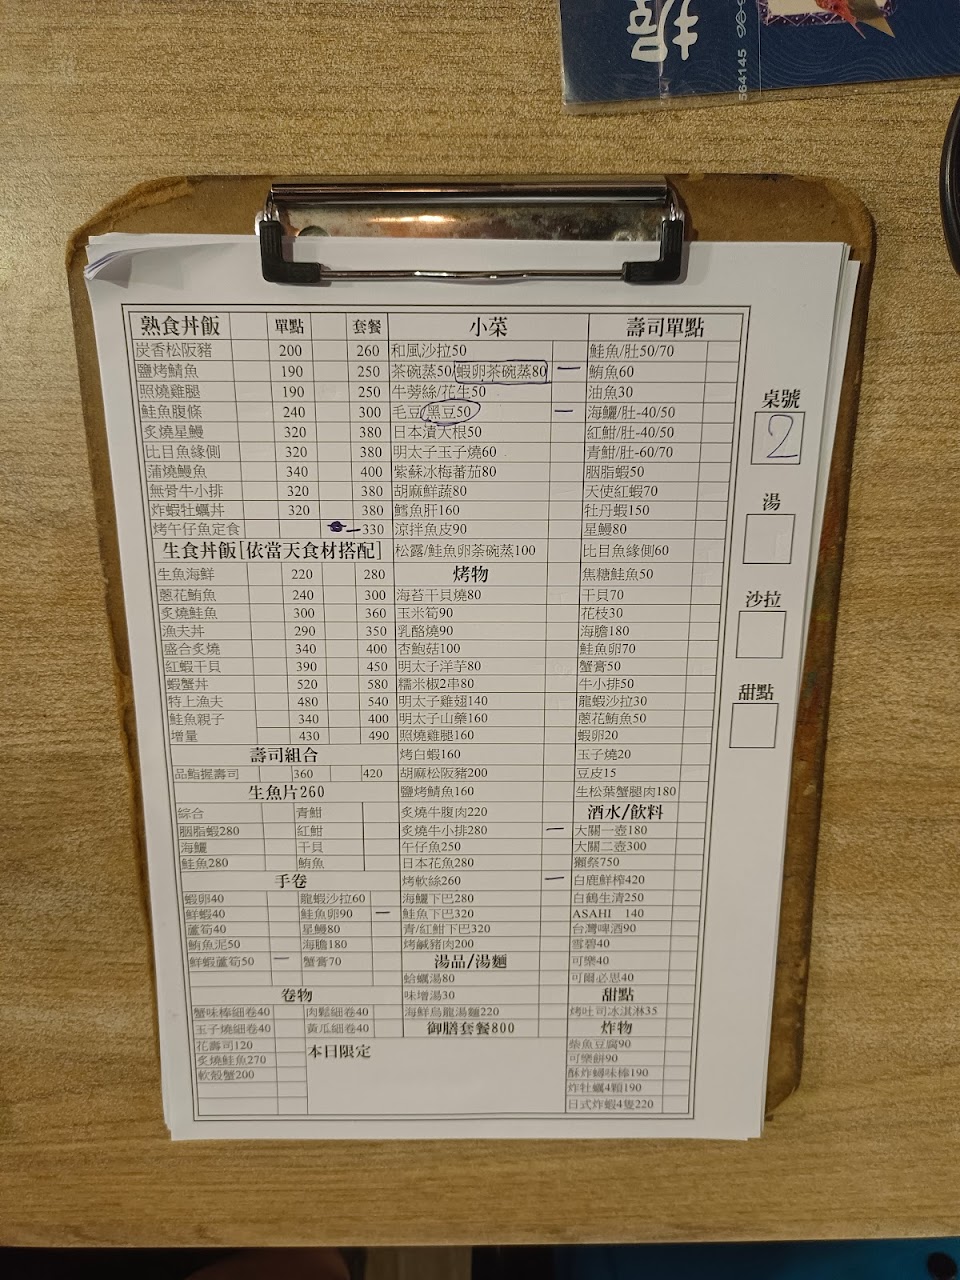 握
564145
熟食丼飯 單點 套餐
炭香松阪豬 200 260
鹽烤鯖魚 190 250
照燒雞腿 190 250
鮭魚腹條 240 300
炙燒星鰻 320 380
比目魚緣側 320 380
蒲燒鰻魚 340 400
無骨牛小排 320 380
炸蝦牡蠣丼 320 380
烤午仔魚定食 330
生食丼飯[依當天食材搭配]
生魚海鮮 220 280
蔥花鮪魚 240 300
炙燒鮭魚 300 360
漁夫丼 290 350
盛合炙燒 340 400
紅蝦干貝 390 450
蝦蟹丼 520 580
特上漁夫 480 540
鮭魚親子 340 400
增量 430 490
壽司組合
品鮨握壽司 360 420
生魚片260
綜合 青魽
胭脂蝦280 紅魽
海鱺 干貝
鮭魚280 鮪魚
手卷
蝦卵40 龍蝦沙拉60
鮮蝦40 鮭魚卵90 一
蘆筍40 星鰻80
鮪魚泥50 海膽180
鮮蝦蘆筍50 一 蟹膏70
卷物
蟹味棒細卷40 肉鬆細卷40
玉子燒細卷40 黃瓜細卷40
花壽司120
炙燒鮭魚270
軟殼蟹200
本日限定
小菜
和風沙拉50
茶碗蒸50/蝦卵茶碗蒸80 一
牛蒡絲/花生50
毛豆/黑豆50 一
日本漬大根50
明太子玉子燒60
紫蘇冰梅蕃茄80
胡麻鮮蔬80
鱈魚肝160
涼拌魚皮90
松露/鮭魚卵茶碗蒸100
烤物
海苔干貝燒80
玉米筍90
乳酪燒90
杏鮑菇100
明太子洋芋80
糯米椒2串80
明太子雞翅140
明太子山藥160
照燒雞腿160
烤白蝦160
胡麻松阪豬200
鹽烤鯖魚160
炙燒牛腹肉220
炙燒牛小排280 一
午仔魚250
日本花魚280
烤軟絲260 一
海鱺下巴280
鮭魚下巴320
青/紅魽下巴320
烤鹹豬肉200
湯品/湯麵
蛤蠣湯80
味增湯30
海鮮烏龍湯麵220
御膳套餐800
壽司單點
鮭魚/肚50/70
鮪魚60
油魚30
海鱺/肚-40/50
紅魽/肚-40/50
青魽/肚-60/70
胭脂蝦50
天使紅蝦70
牡丹蝦150
星鰻80
比目魚緣側60
焦糖鮭魚50
干貝70
花枝30
海膽180
鮭魚卵70
蟹膏50
牛小排50
龍蝦沙拉30
蔥花鮪魚50
蝦卵20
玉子燒20
豆皮15
生松葉蟹腿肉180
酒水/飲料
大關一壺180
大關二壺300
獺祭750
白鹿鮮榨420
白鶴生清250
ASAHI 140
台灣啤酒90
雪碧40
可樂40
可爾必思40
甜點
烤吐司冰淇淋35
炸物
柴魚豆腐90
可樂餅90
酥炸鱘味棒190
炸牡蠣4顆190
日式炸蝦4隻220
桌號
2
湯
沙拉
甜點